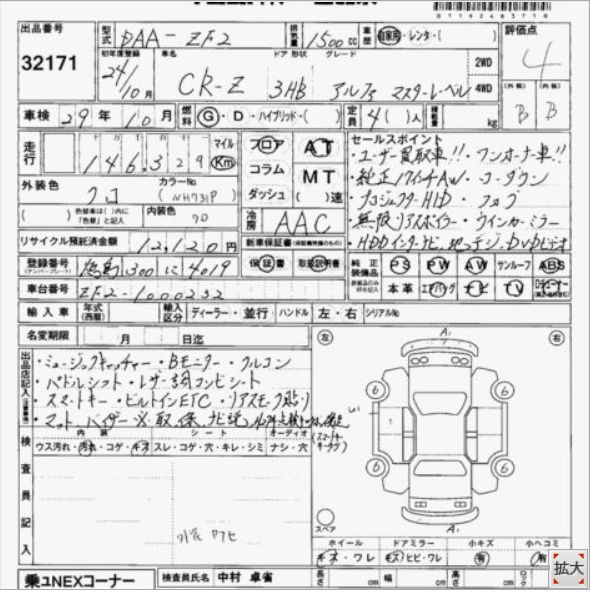 出品番号
32171
型式 DAA-ZF2
排気量 1500 cc
車歴 自家用・レンタ・( )
評価点
4
初年度登録 24/10月
車名 CR-Z
ドア形状 3HB
グレード アルファ マスターレーベル
2WD
4WD
(外装) B
(内装) B
車検 29年10月
燃料 G・D・ハイブリッド・( )
定員 4( )人
積載量 kg
走行 146,329
マイル
Km
フロア
コラム
ダッシュ
AT
MT
( )速
外装色 クロ
カラーNo. (NH731P)
( )色替車は( )内に「色替」と記入
内装色 クロ
冷房 AAC
リサイクル預託済金額 12,120円
新車保証書
保証書
取扱説明書
セールスポイント
・ユーザー買取車!!・ワンオーナー車!!
・純正17インチAW・コーダウン
・プロジェクターHID・フォグ
・無限リアスポイラー・ウインカーミラー
・HDDインターナビ・地デジ・DVDビデオ
登録番号 (ナンバープレート) 300 に 4019
車台番号 ZF2-1000232
純正装備品
PS PW AW サンルーフ ABS
本革 エアバッグ ナビ TV
輸入車
年式(西暦)
輸入区分 ディーラー・並行
ハンドル 左・右
シリアルNo
名変期限 月 日迄
出品店記入
・ミュージックキャッチャー・Bモニター・クルコン
・パドルシフト・レザー調コンビシート
・スマートキー・ビルトインETC・リアスモーク貼り
・マット バイザー
検査員記入
内装
シート
オーディオ
ウス汚れ・汚れ・コゲ・キズ
スレ・コゲ・穴・キレ・シミ
ナシ・穴
左
右
A1
6
6
1
6
6
A1
スペア
ホイール
ドアミラー
小キズ
小ヘコミ
キズ・ワレ
キズ・ヒビ・ワレ
有
有
乗ユNEXコーナー
検査員氏名 中村 卓省
長さ cm 幅 cm 高さ cm
拡大